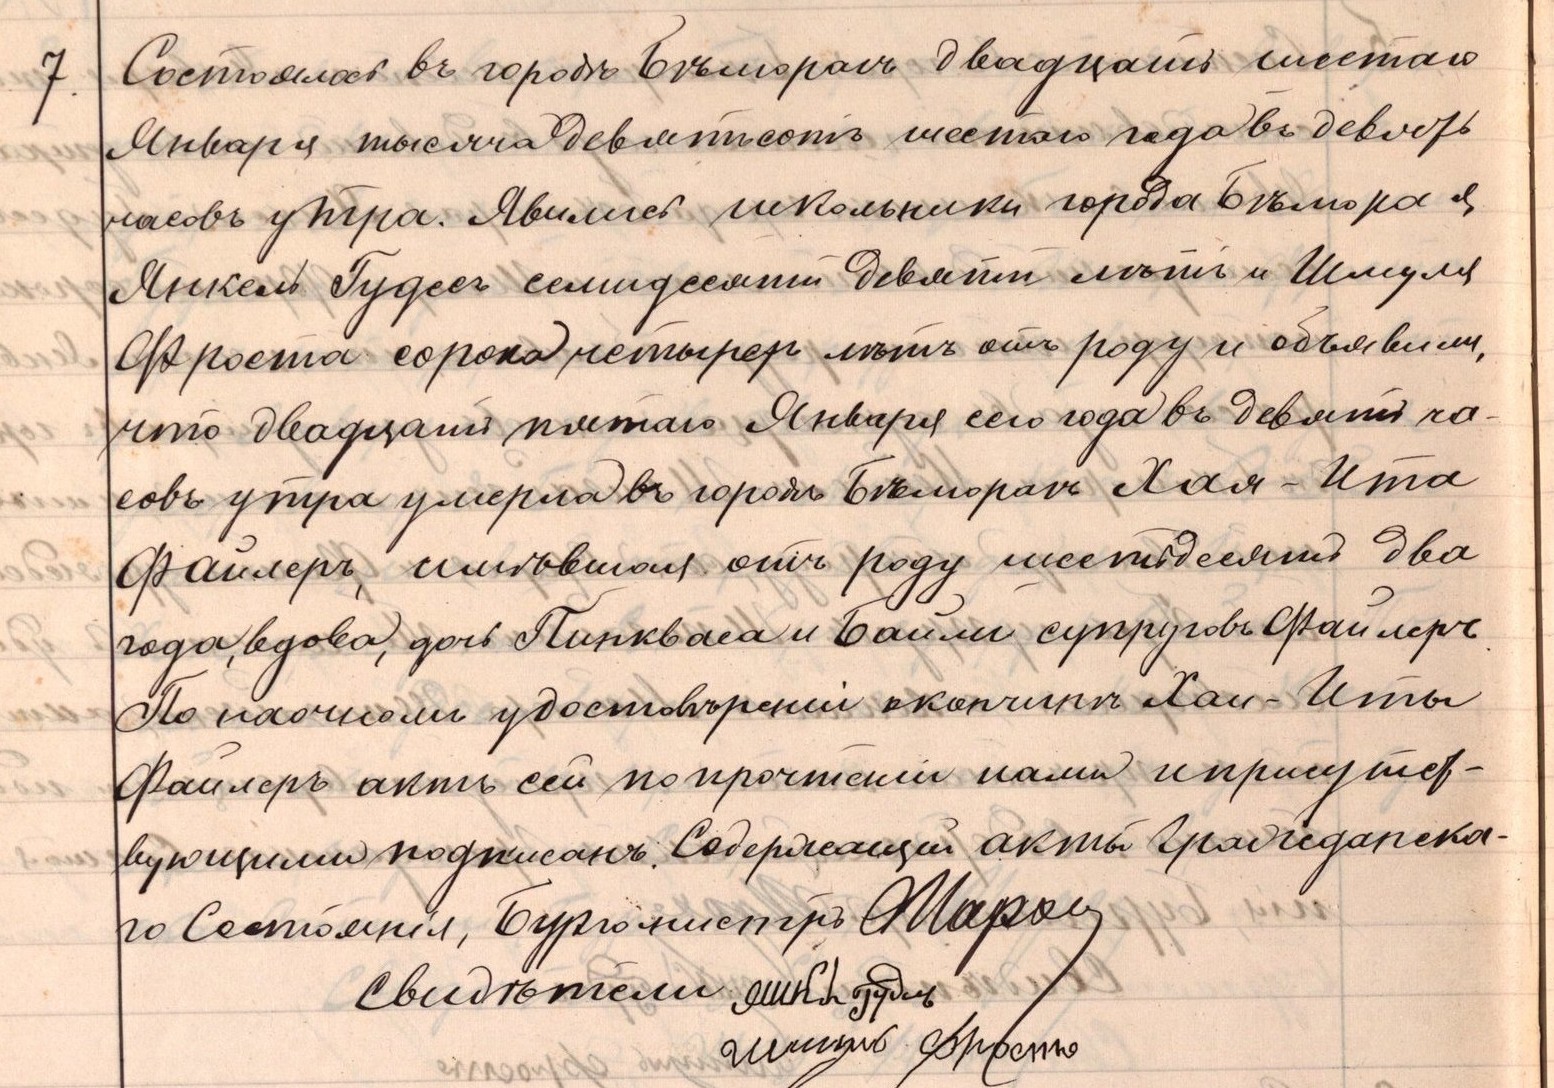 7. Состоялось въ городѣ Бѣлгораѣ двадцать шестаго
Января тысяча девятьсотъ шестаго года въ девять
часовъ утра. Явились школьники города Бѣлгорая
Янкель Гудесъ семидесяти девяти лѣтъ и Шмуля
Фроста сорока четырехъ лѣтъ отъ роду и объявили,
что двадцать пятаго Января сего года въ девять ча-
совъ утра умерла въ городѣ Бѣлгораѣ Хая-Ита
Файлеръ, имѣвшая отъ роду шестьдесятъ два
года, вдова, дочь Пинкваса и Байли супруговъ Файлеръ.
По наочномъ удостовѣреніи о кончинѣ Хаи-Иты
Файлеръ актъ сей по прочтеніи нами и присутст-
вующими подписанъ. Содержащій акты Гражданска-
го Состоянія, Бургомистръ
Свидѣтели
Шмуль Фростъ